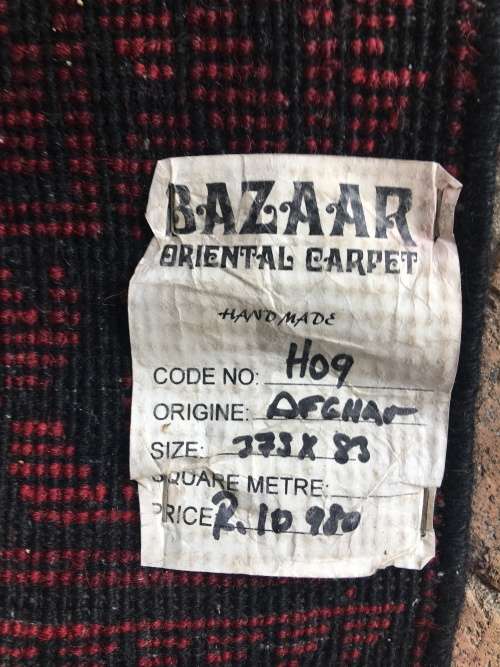 BAZAAR
ORIENTAL CARPET
HANDMADE
CODE NO: H09
ORIGINE: AFGHAN
SIZE: 373 X 83
SQUARE METRE:
PRICE R. 10 980